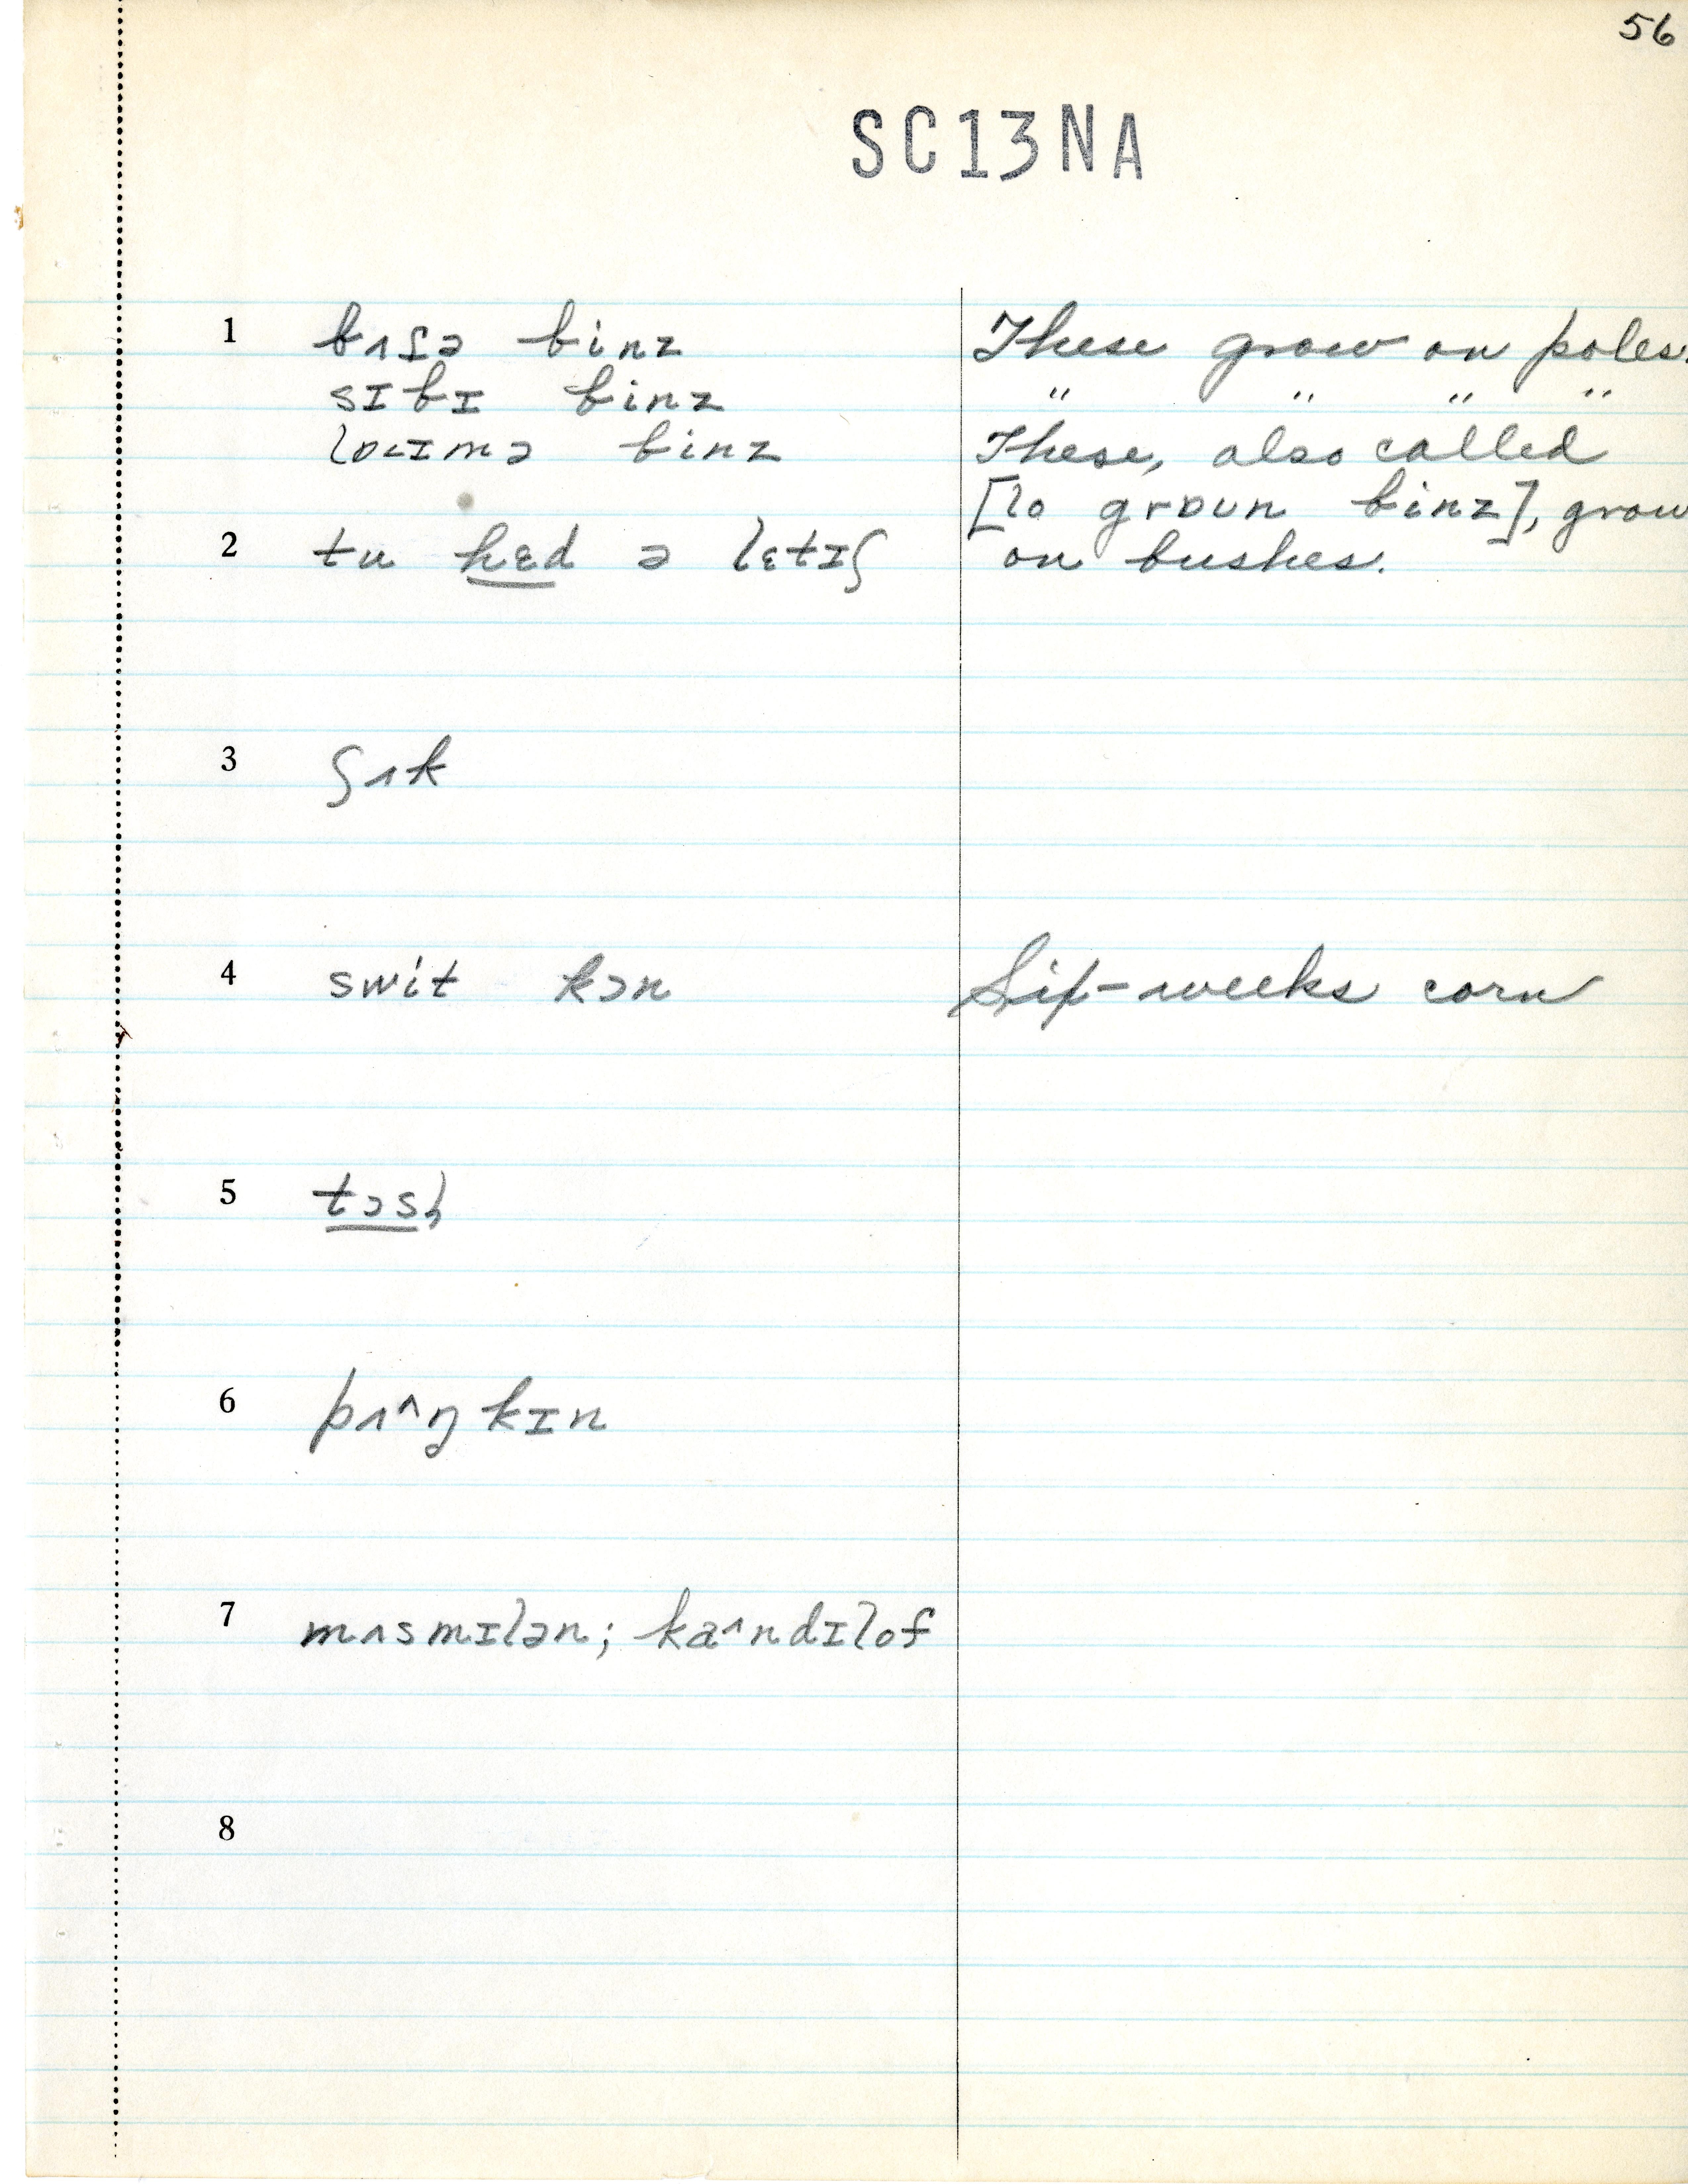 56
SC13NA
1 bʌɾə binz These grow on poles.
sɪbɪ binz " " " "
lɑɪmə binz These, also called
[lo grɒʊn binz], grow
2 tu hɛd ə lɛtɪʃ on bushes.
3 ʃʌk
4 swit kɔn Six-weeks corn
5 tɔsl̩
6 pʌ^ŋkɪn
7 mʌsmɪlən; ka^ndɪlof
8